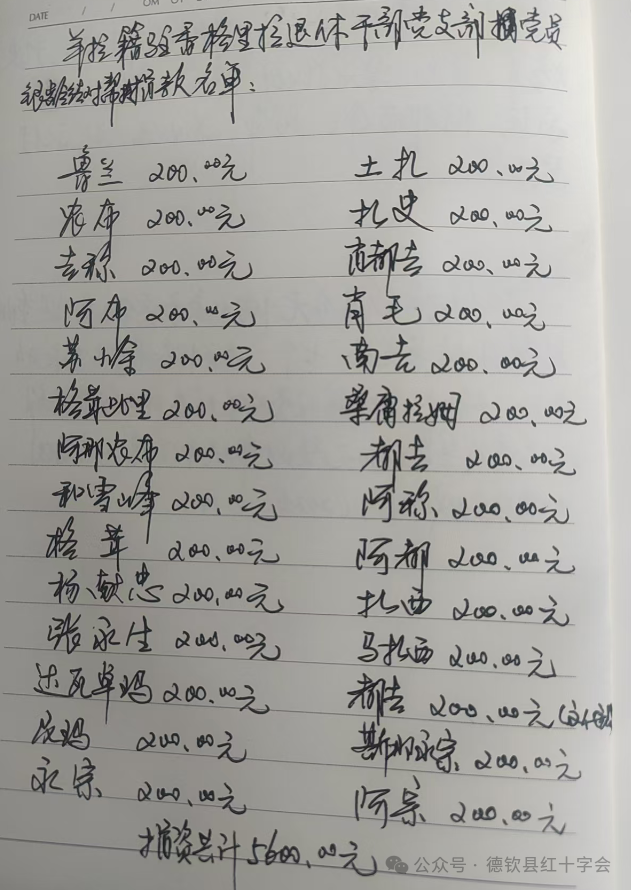 DATE / / OM OF
羊拉籍驻香格里拉退休干部党支部 党员
结对帮扶捐款名单：
鲁兰 200.00元 土扎 200.00元
农布 200.00元 扎史 200.00元
吉称 200.00元 肖都吉 200.00元
阿布 200.00元 肖毛 200.00元
苏小伞 200.00元 南吉 200.00元
格茸此里 200.00元 拉姆 200.00元
阿那农布 200.00元 都吉 200.00元
和雪峰 200.00元 阿称 200.00元
格茸 200.00元 阿都 200.00元
杨献忠 200.00元 扎西 200.00元
张永生 200.00元 马扎西 200.00元
达瓦卓玛 200.00元 都吉 200.00元
尼玛 200.00元 斯那永宗 200.00元
永宗 200.00元 阿宗 200.00元
捐资共计5600.00元
公众号·德钦县红十字会